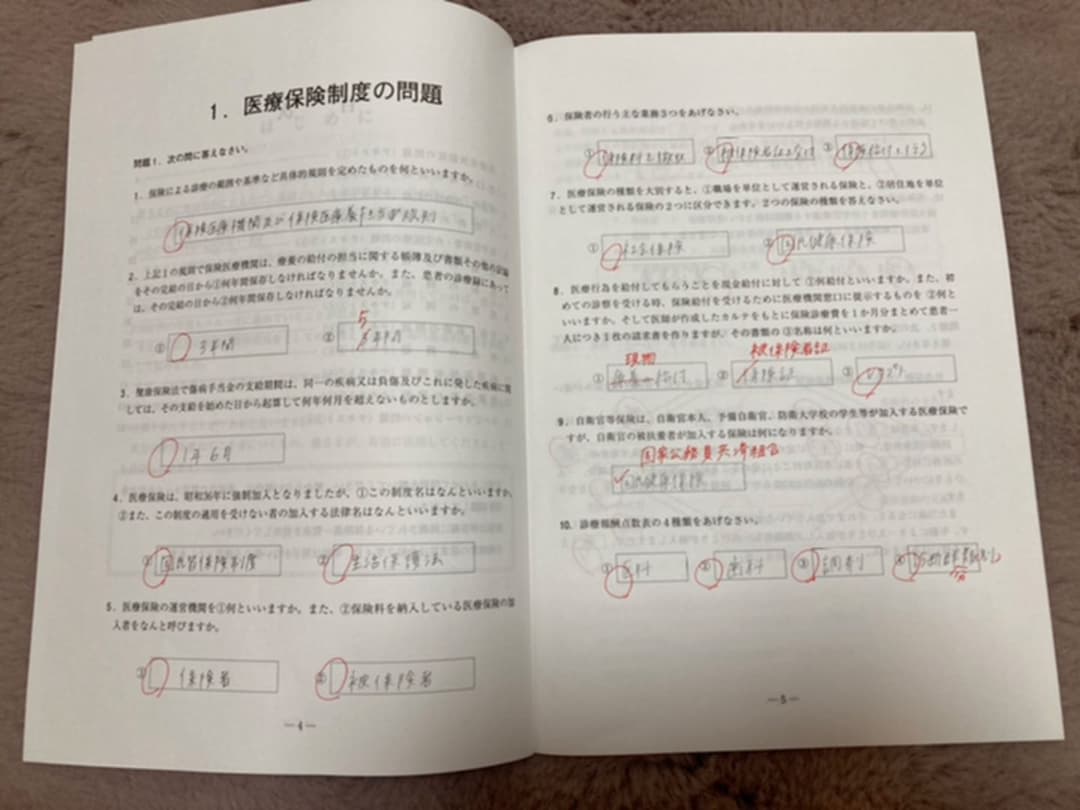 1. 医療保険制度の問題
問題1. 次の問に答えなさい。
1. 保険による診療の範囲や基準など具体的規則を定めたものを何といいますか。
保険医療機関及び保険医療養担当規則
2. 上記1の規則で保険医療機関は、療養の給付の担当に関する帳簿及び書類その他の記録
をその完結の日から①何年間保存しなければなりませんか。また、患者の診療録にあって
は、その完結の日から②何年間保存しなければなりませんか。
① 3年間
② 5年間
3. 健康保険法で傷病手当金の支給期間は、同一の疾病又は負傷及びこれに発した疾病に関
しては、その支給を始めた日から起算して何年何月を超えないものとしますか。
1年6月
4. 医療保険は、昭和36年に強制加入となりましたが、①この制度名はなんといいますか。
②また、この制度の適用を受けない者の加入する法律名はなんといいますか。
① 国民皆保険制度
② 生活保護法
5. 医療保険の運営機関を①何といいますか。また、②保険料を納入している医療保険の加
入者をなんと呼びますか。
① 保険者
② 被保険者
―4―
6. 保険者の行う主な業務3つをあげなさい。
① 保険料を徴収
② 被保険者証を交付
③ 保険給付を行う
7. 医療保険の種類を大別すると、①職場を単位として運営される保険と、②居住地を単位
として運営される保険の2つに区分できます。2つの保険の種類を答えなさい。
① 社会保険
② 国民健康保険
8. 医療行為を給付してもらうことを現金給付に対して ①何給付といいますか。また、初
めての診察を受ける時、保険給付を受けるために医療機関窓口に提示するものを ②何と
いいますか。そして医師が作成したカルテをもとに保険診療費を1か月分まとめて患者一
人につき1枚の請求書を作りますが、その書類の③名称は何といいますか。
現物
被保険者証
① 療養の給付
② 保険証
③ レセプト
9. 自衛官等保険は、自衛官本人、予備自衛官、防衛大学校の学生等が加入する医療保険で
すが、自衛官の被扶養者が加入する保険は何になりますか。
国家公務員共済組合
国民健康保険
10. 診療報酬点数表の4種類をあげなさい。
① 医科
② 歯科
③ 調剤
④
―5―